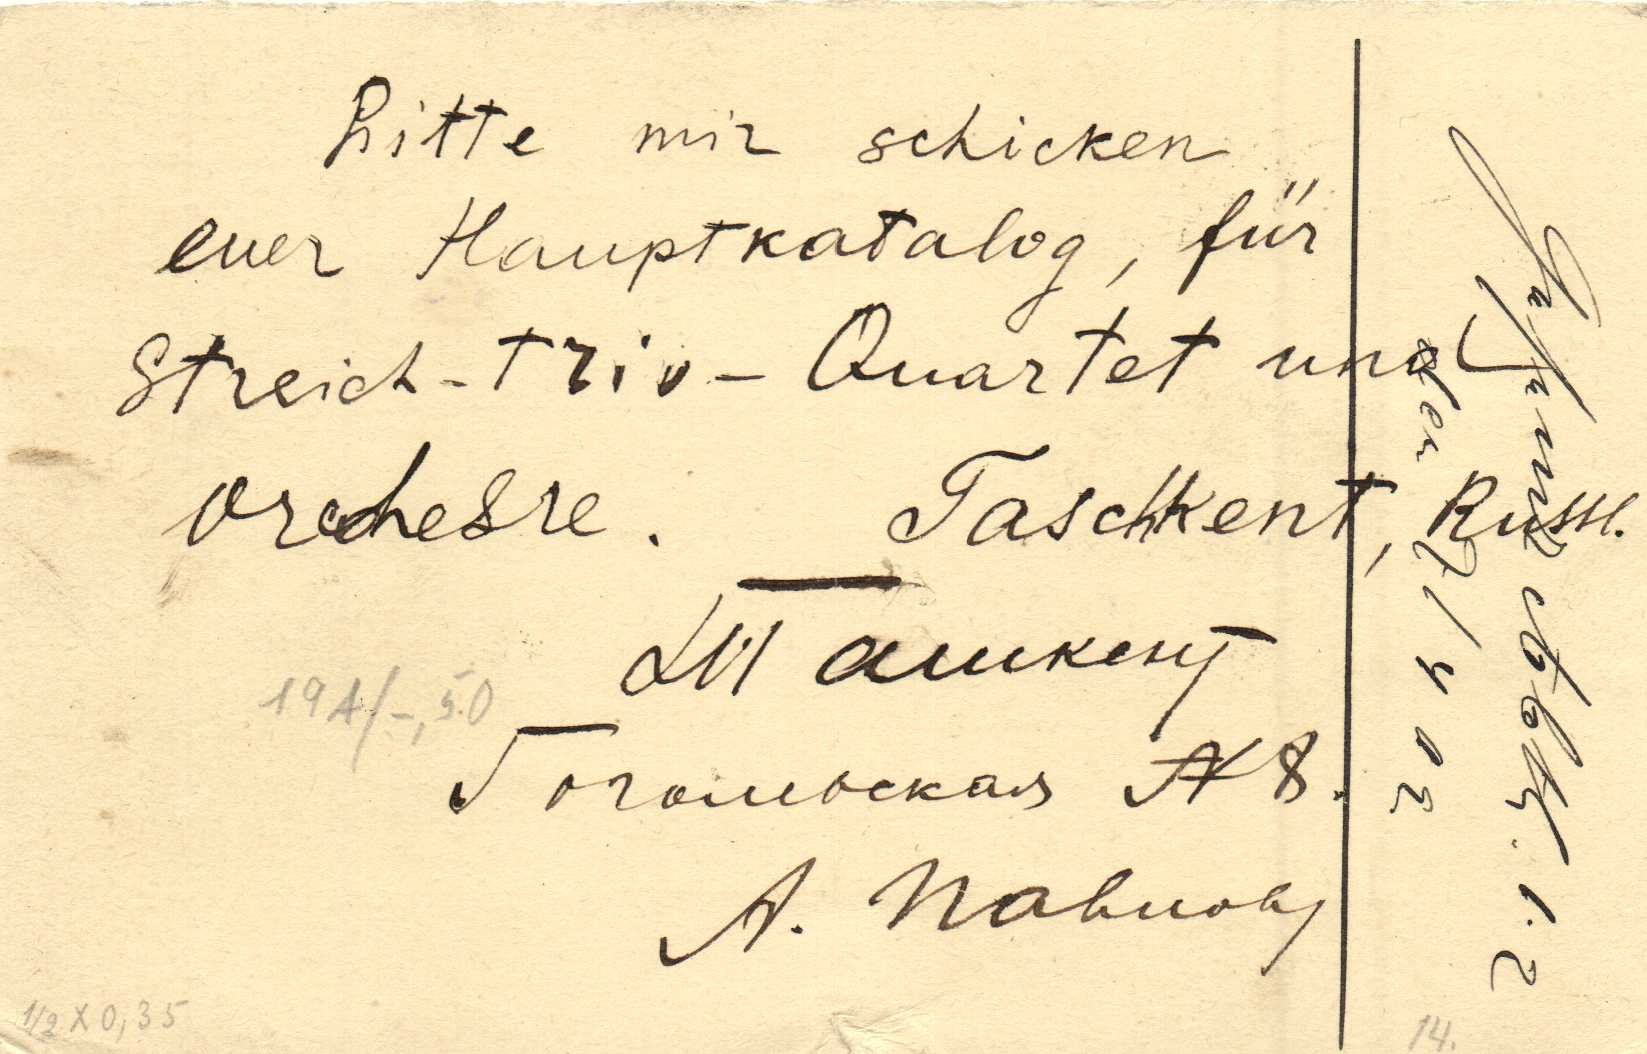 Bitte mir schicken
euer Hauptkatalog, für
Streich-trio-Quartet und
Orchesre. Taschkent, Russl.
Ташкент
Гогольская № 8.
А. Павлову
den 7/4 02
1.2
19 A/-,50
1/2 X 0,35
14.